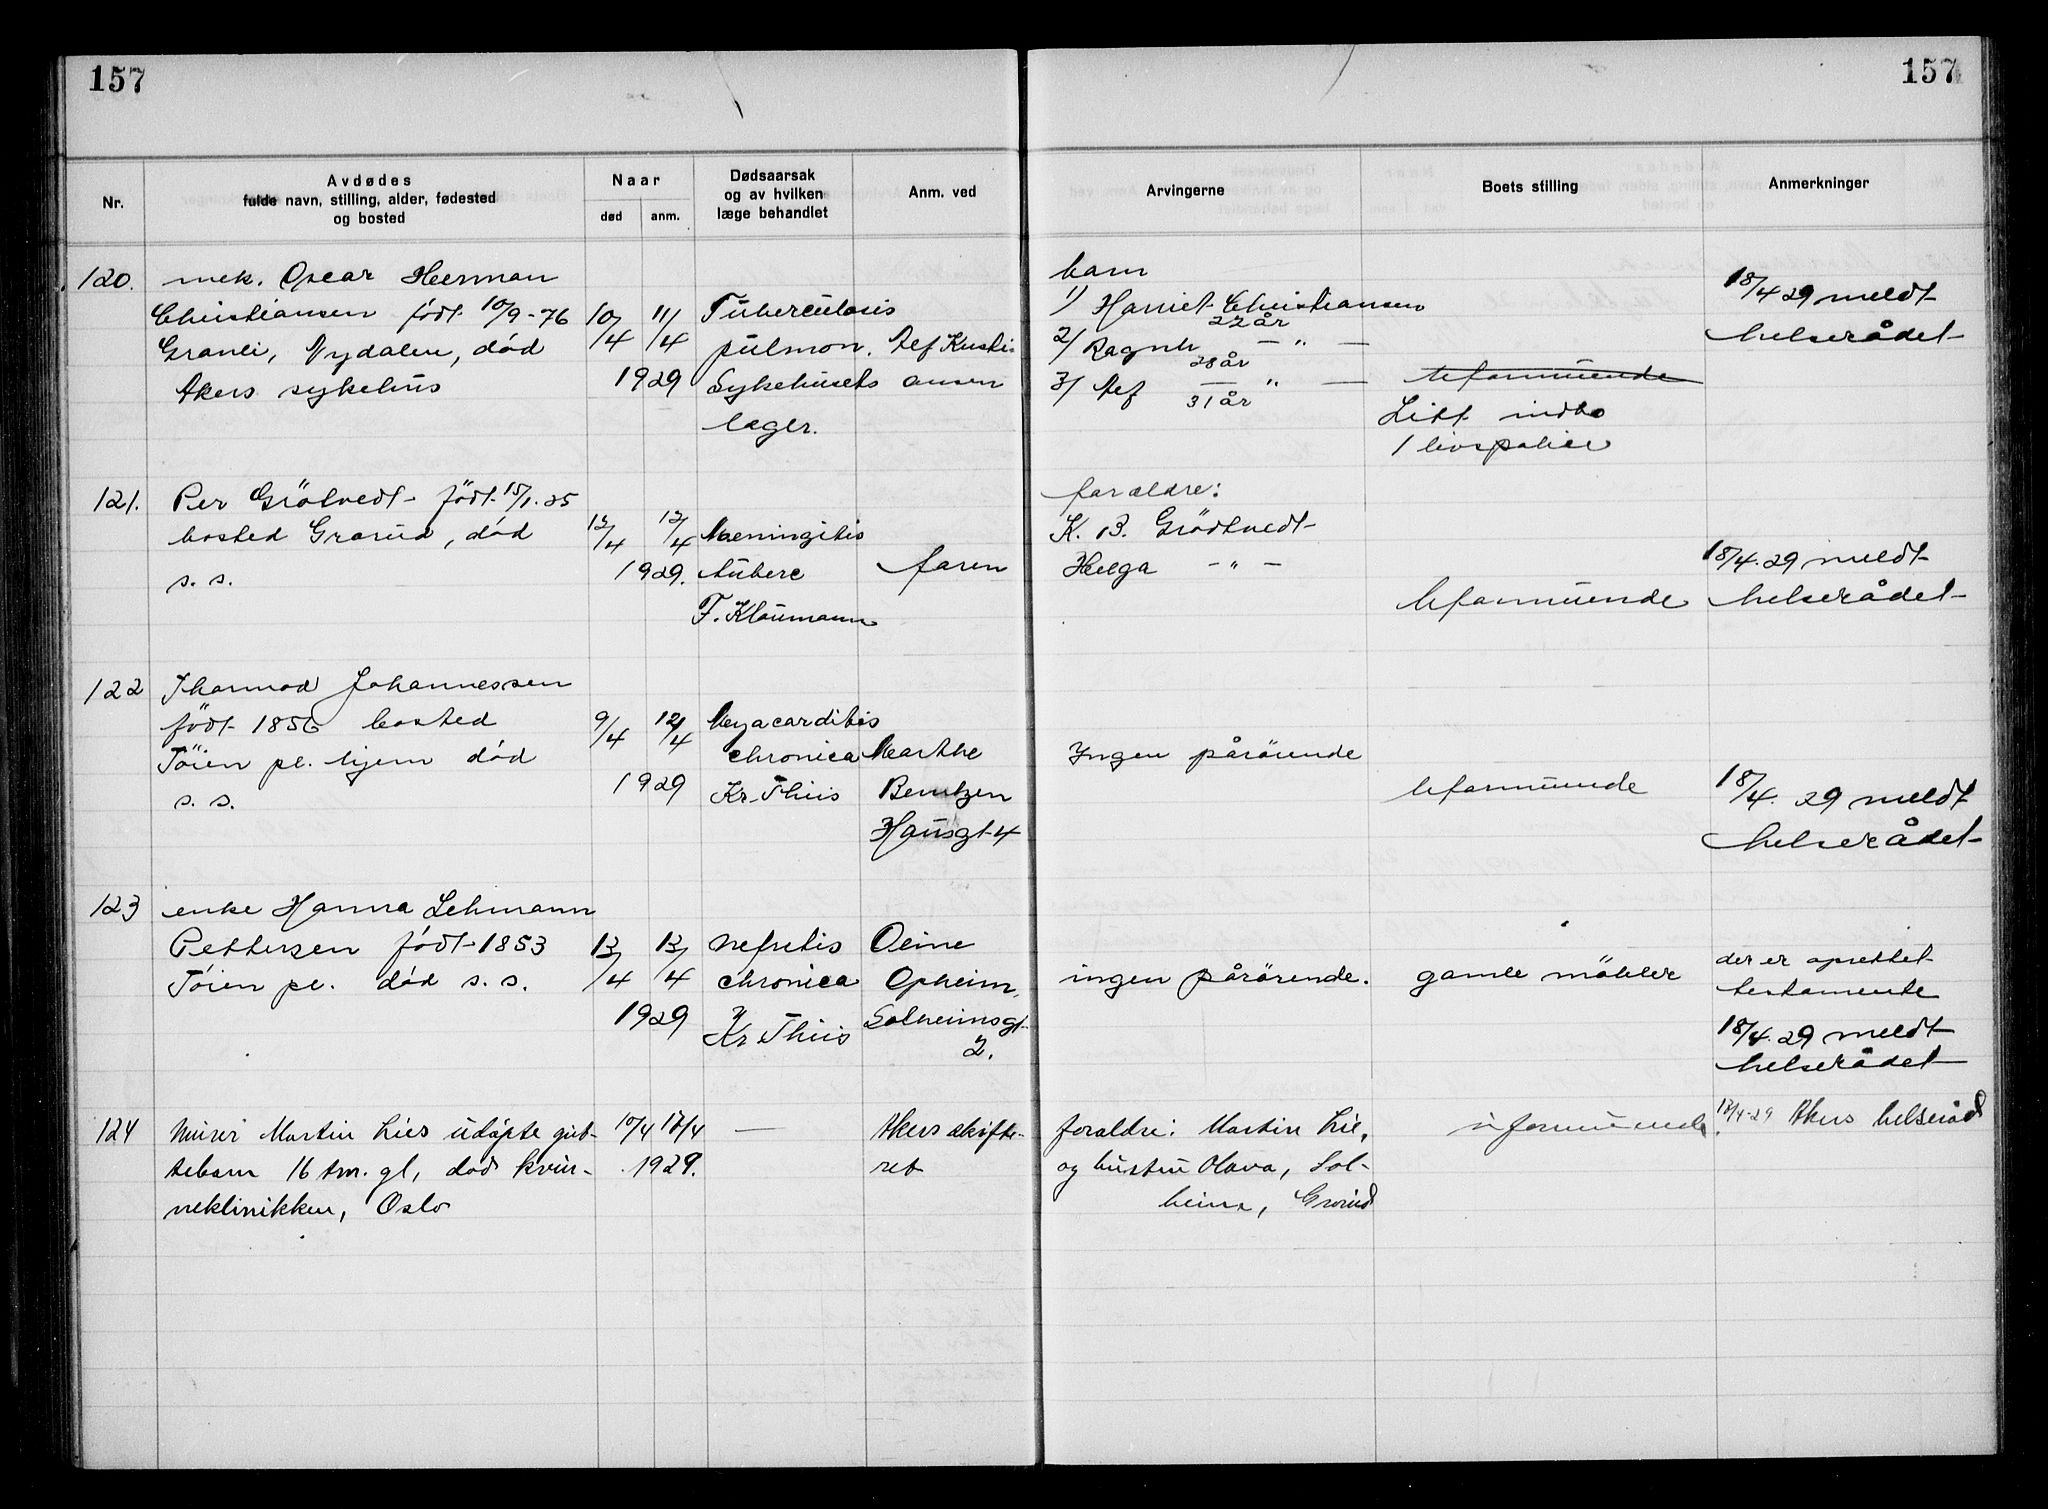 157
157
Nr.
Avdødes
fulde navn, stilling, alder, fødested
og bosted
Naar
død
anm.
Dødsaarsak
og av hvilken
læge behandlet
Anm. ved
Arvingerne
Boets stilling
Anmerkninger
120.
mek. Oscar Herman
Christiansen født 10/9-76
Granli, Nydalen, død
Akers sykehus
10/4
11/4
1929
Tuberculosis
pulmon.
Sykehusets
læger.
Alf Kristi-
ansen
barn
1) Harriet Christiansen
22 år
2) Ragnh — " —
28 år
3) Alf — " —
31 år
Uformuende
Litt indbo
1 livspolice
18/4 29 meldt
helserådet
121.
Per Grötvedt født 15/1.25
bosted Grorud, död
s. s.
12/4
12/4
1929.
Meningitis
tuberc
F. Klaumann
faren
foreldre:
K. B. Grödtvedt
Helga — " —
Uformuende
18/4.29 meldt
helserådet
122
Thormod Johannessen
födt 1856 bosted
Töien pl. hjem död
s. s.
9/4
12/4
1929
Myocarditis
chronica
Kr. Thiis
Marthe
Berntzen
Hausgt 4
Ingen pårörende
Uformuende
18/4. 29 meldt
helserådet
123
enke Hanna Lehmann
Pettersen födt 1853
Töien pl. död s. s.
13/4
13/4
1929
nefritis
chronica
Kr Thiis
Oline
Opheim,
Solheimsgt
2.
ingen pårörende.
gamle möbler
der er oprettet
testamente
18/4.29 meldt
helserådet
124
Murer Martin Lies udøpte gut-
tebarn 16 tm. gl, død kvin-
neklinikken, Oslo
10/4
17/4
1929.
—
Akers skifte-
ret
foreldre: Martin Lie,
og hustru Olava, Sol-
heim, Grorud
uformuende
18/4-29 Akers helseråd